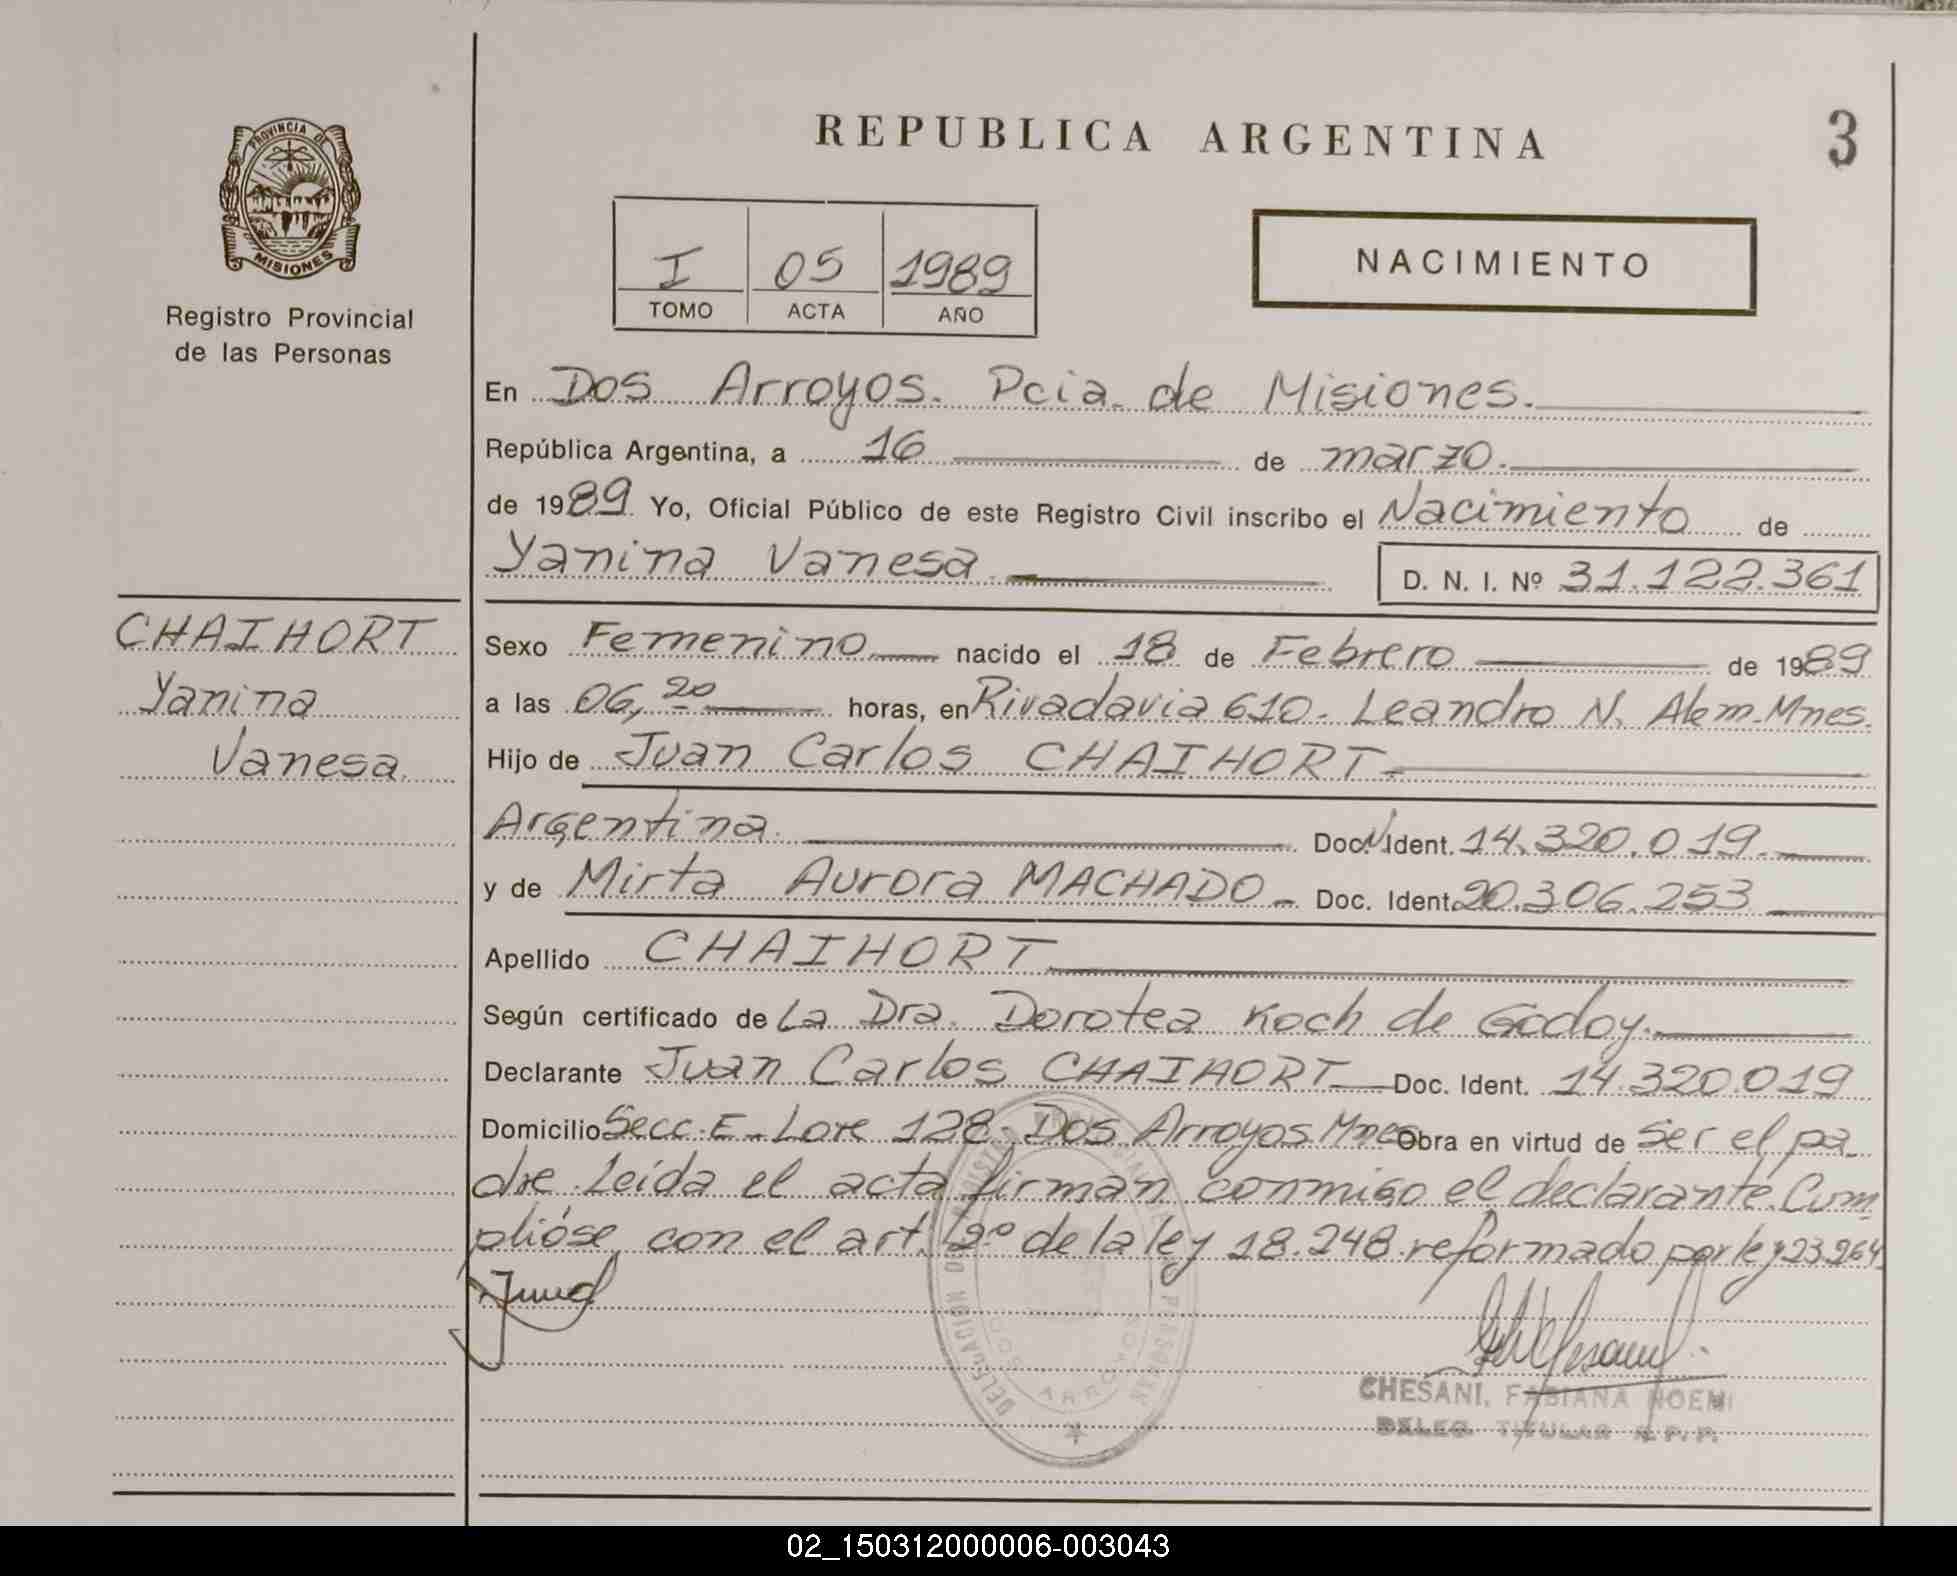 PROVINCIA DE
MISIONES
Registro Provincial
de las Personas
REPUBLICA ARGENTINA
3
I 05 1989
TOMO ACTA AÑO
NACIMIENTO
En Dos Arroyos. Pcia. de Misiones.
República Argentina, a 16 de marzo.
de 1989 Yo, Oficial Público de este Registro Civil inscribo el Nacimiento de
Yanina Vanesa D. N. I. Nº 31.122.361
CHAIHORT
Yanina
Vanesa.
Sexo Femenino nacido el 18 de Febrero de 1989
a las 06,20 horas, en Rivadavia 610. Leandro N. Alem. Mnes.
Hijo de Juan Carlos CHAIHORT
Argentina. Doc. N. Ident. 14.320.019.
y de Mirta Aurora MACHADO - Doc. Ident. 20.306.253
Apellido CHAIHORT
Según certificado de La Dra. Dorotea Koch de Godoy.
Declarante Juan Carlos CHAIHORT Doc. Ident. 14.320.019
Domicilio Secc. E - Lote 128. Dos Arroyos Mnes Obra en virtud de ser el pa
dre. Leída el acta firman conmigo el declarante. Cum
plióse con el art. 2º de la ley 18.248 reformado por ley 23.264
DELEGACION DEL REGISTRO PROVINCIAL DE LAS PERSONAS
DOS ARROYOS
CHESANI, FABIANA NOEMI
DELEG. TITULAR R.P.P.
02_150312000006-003043